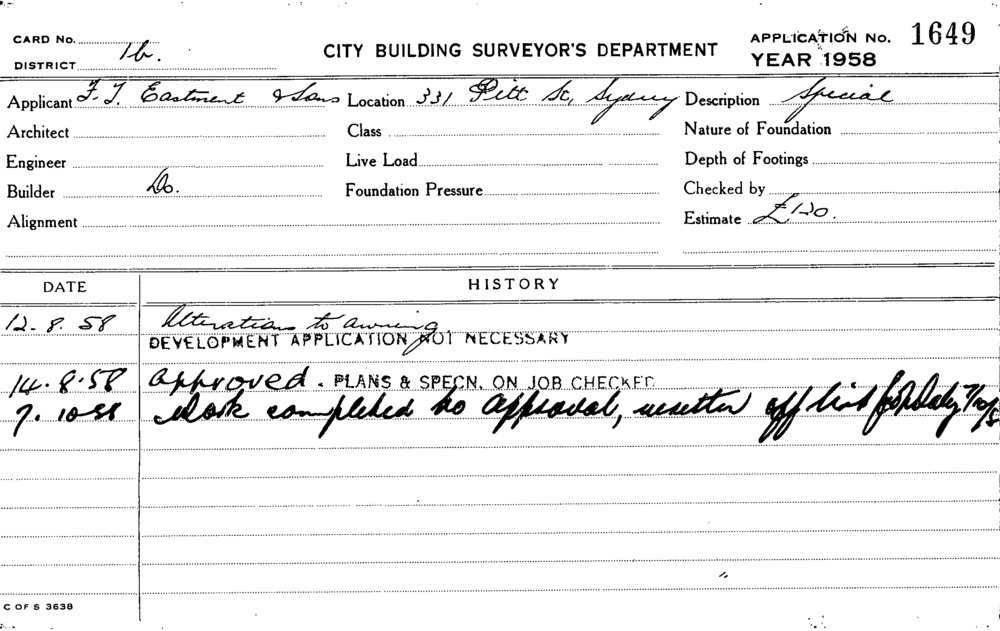 CARD No.
DISTRICT 1b.
CITY BUILDING SURVEYOR'S DEPARTMENT
APPLICATION No. 1649
YEAR 1958
Applicant F. T. Eastment & Sons Location 331 Pitt St, Sydney Description Special
Architect Class Nature of Foundation
Engineer Live Load Depth of Footings
Builder Do. Foundation Pressure Checked by
Alignment Estimate £120.
DATE HISTORY
12.8.58 Alterations to awning
DEVELOPMENT APPLICATION NOT NECESSARY
14.8.58 Approved. PLANS & SPECN. ON JOB CHECKED
7.10.58 Work completed to approval, off list
C OF S 3638